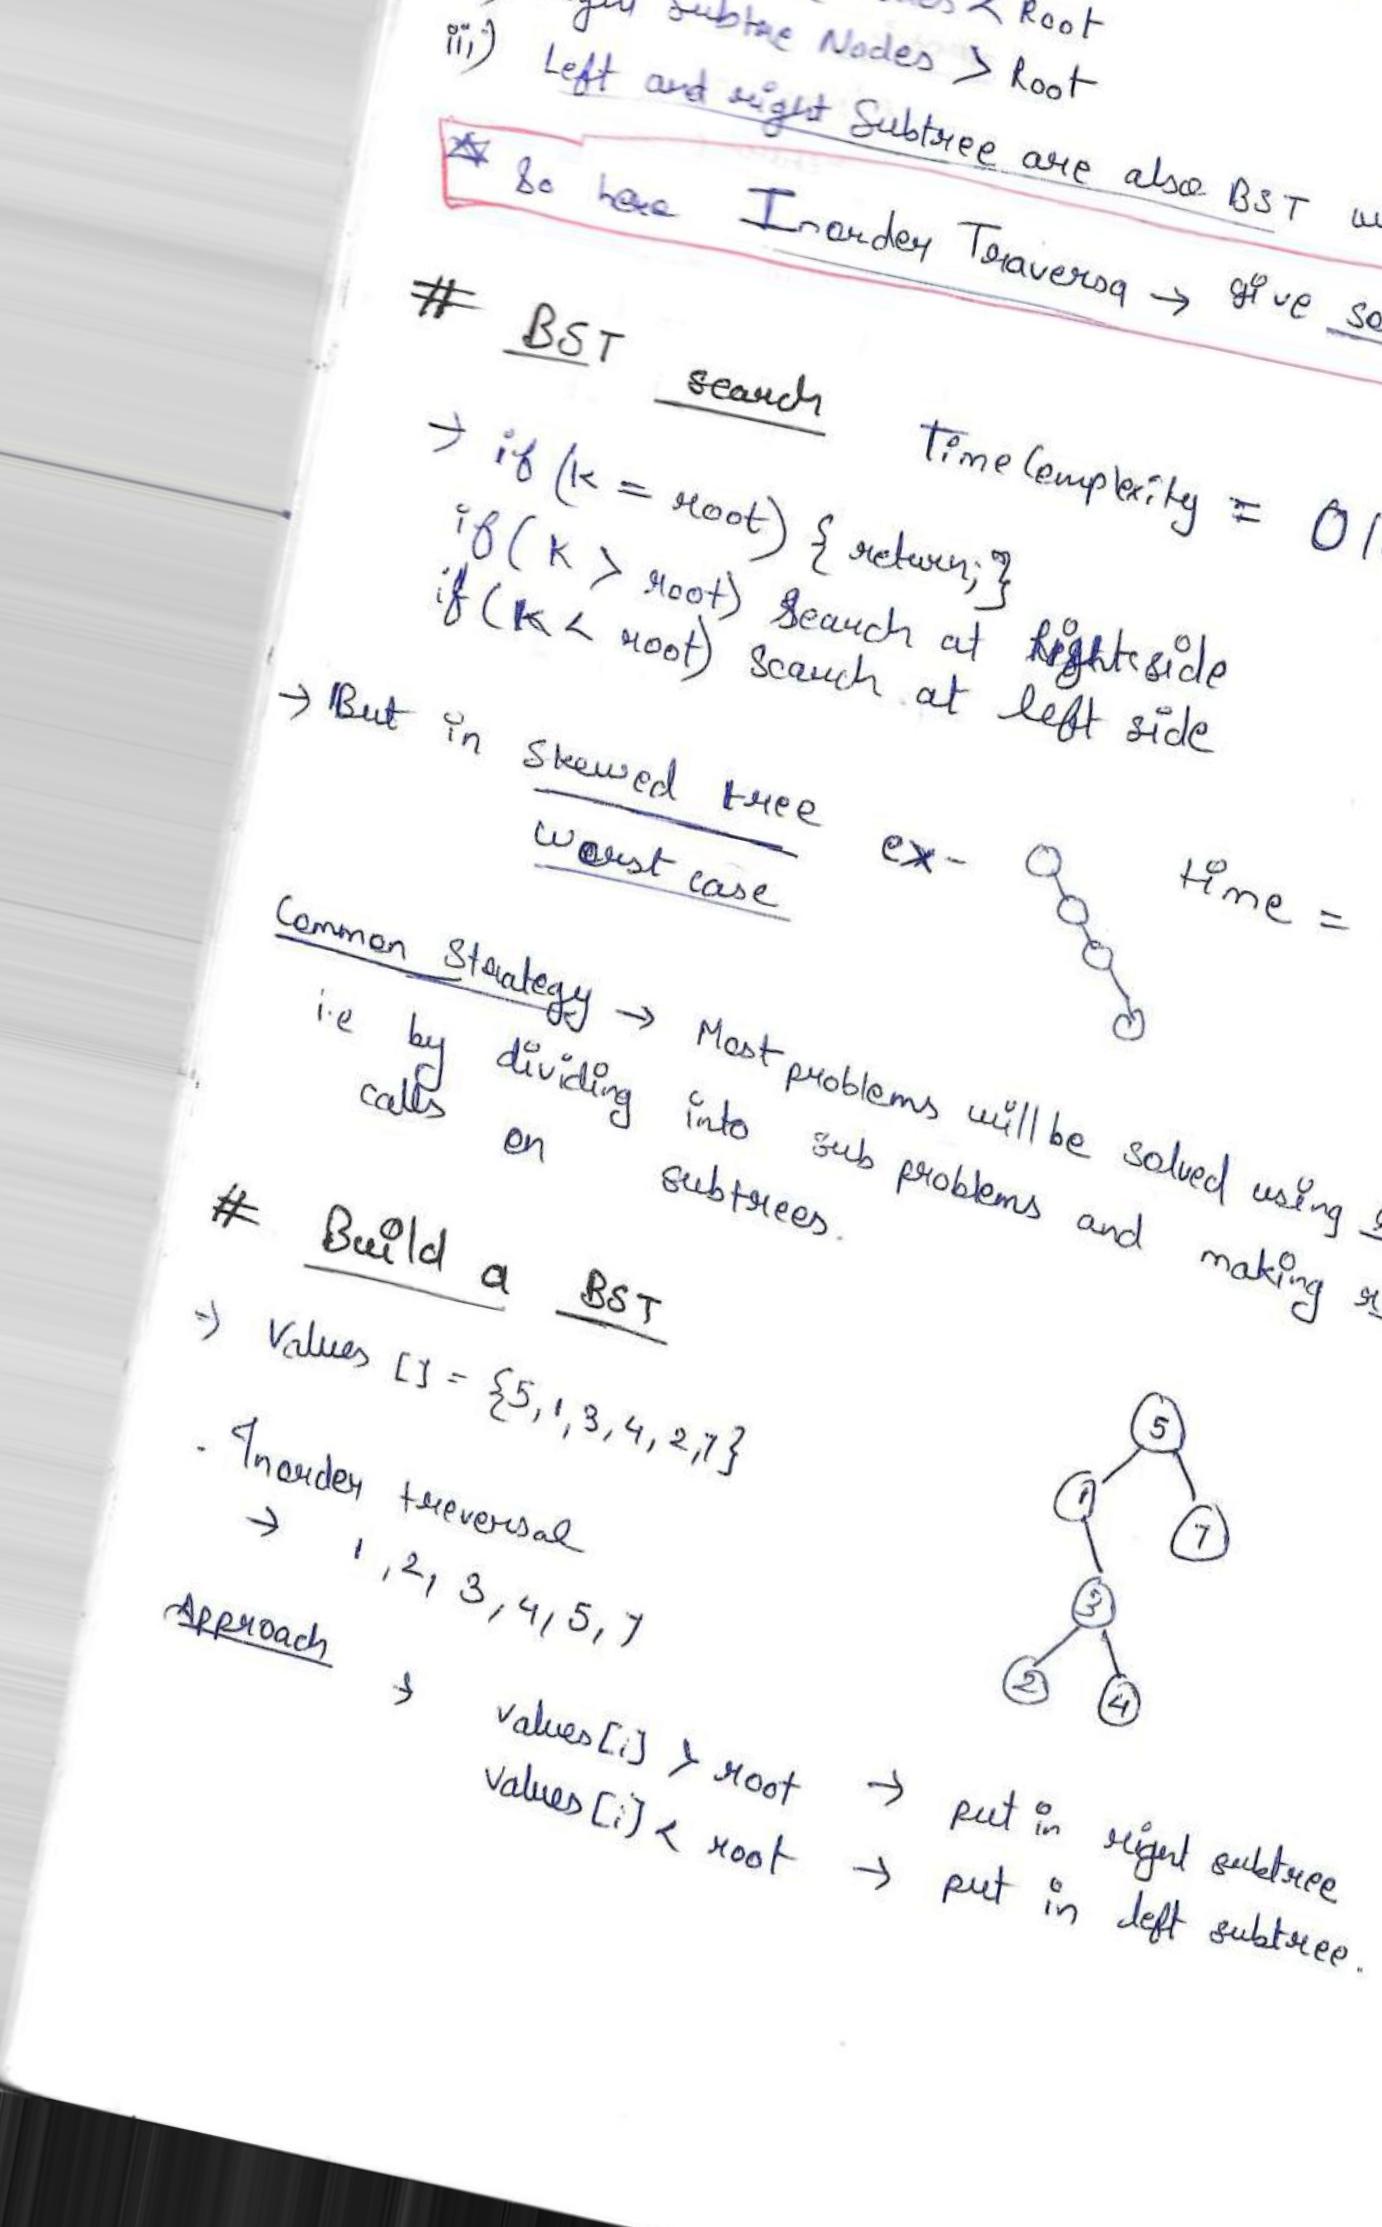 < Root
Subtree Nodes > Root
iii) Left and right Subtree are also BST
So here Inorder Traversa → give
# BST search Time Complexity = O(
→ if (k = root) { return; }
if (K > root) Search at Right side
if (K < root) Search at left side
→ But in skewed tree ex- time =
worst case
Common Strategy → Most problems will be solved using
i.e by dividing into sub problems and making
calls on subtrees.
# Build a BST
→ Values [] = {5,1,3,4,2,7}
5
1
7
3
2
4
. Inorder treversal
→ 1, 2, 3, 4, 5, 7
Approach
→ values[i] > root → put in right subtree
values[i] < root → put in left subtree.